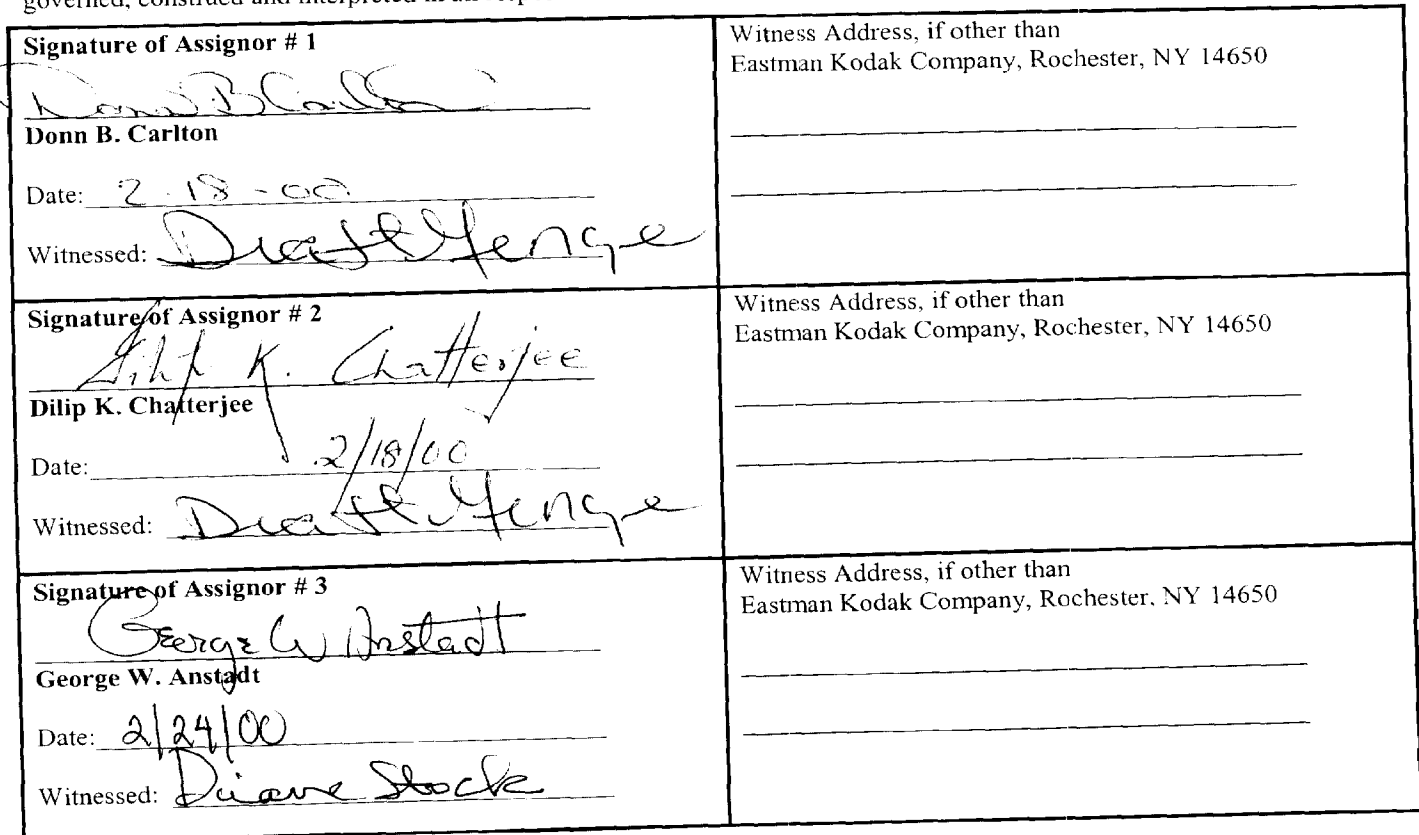 governed, construed and interpreted in all
Signature of Assignor # 1
Donn B Carlton
Donn B. Carlton
Date: 2-18-00
Witnessed:
Witness Address, if other than
Eastman Kodak Company, Rochester, NY 14650
Signature of Assignor # 2
Dilip K. Chatterjee
Dilip K. Chatterjee
Date: 2/18/00
Witnessed:
Witness Address, if other than
Eastman Kodak Company, Rochester, NY 14650
Signature of Assignor # 3
George W Anstadt
George W. Anstadt
Date: 2/24/00
Witnessed: Diane Stock
Witness Address, if other than
Eastman Kodak Company, Rochester, NY 14650